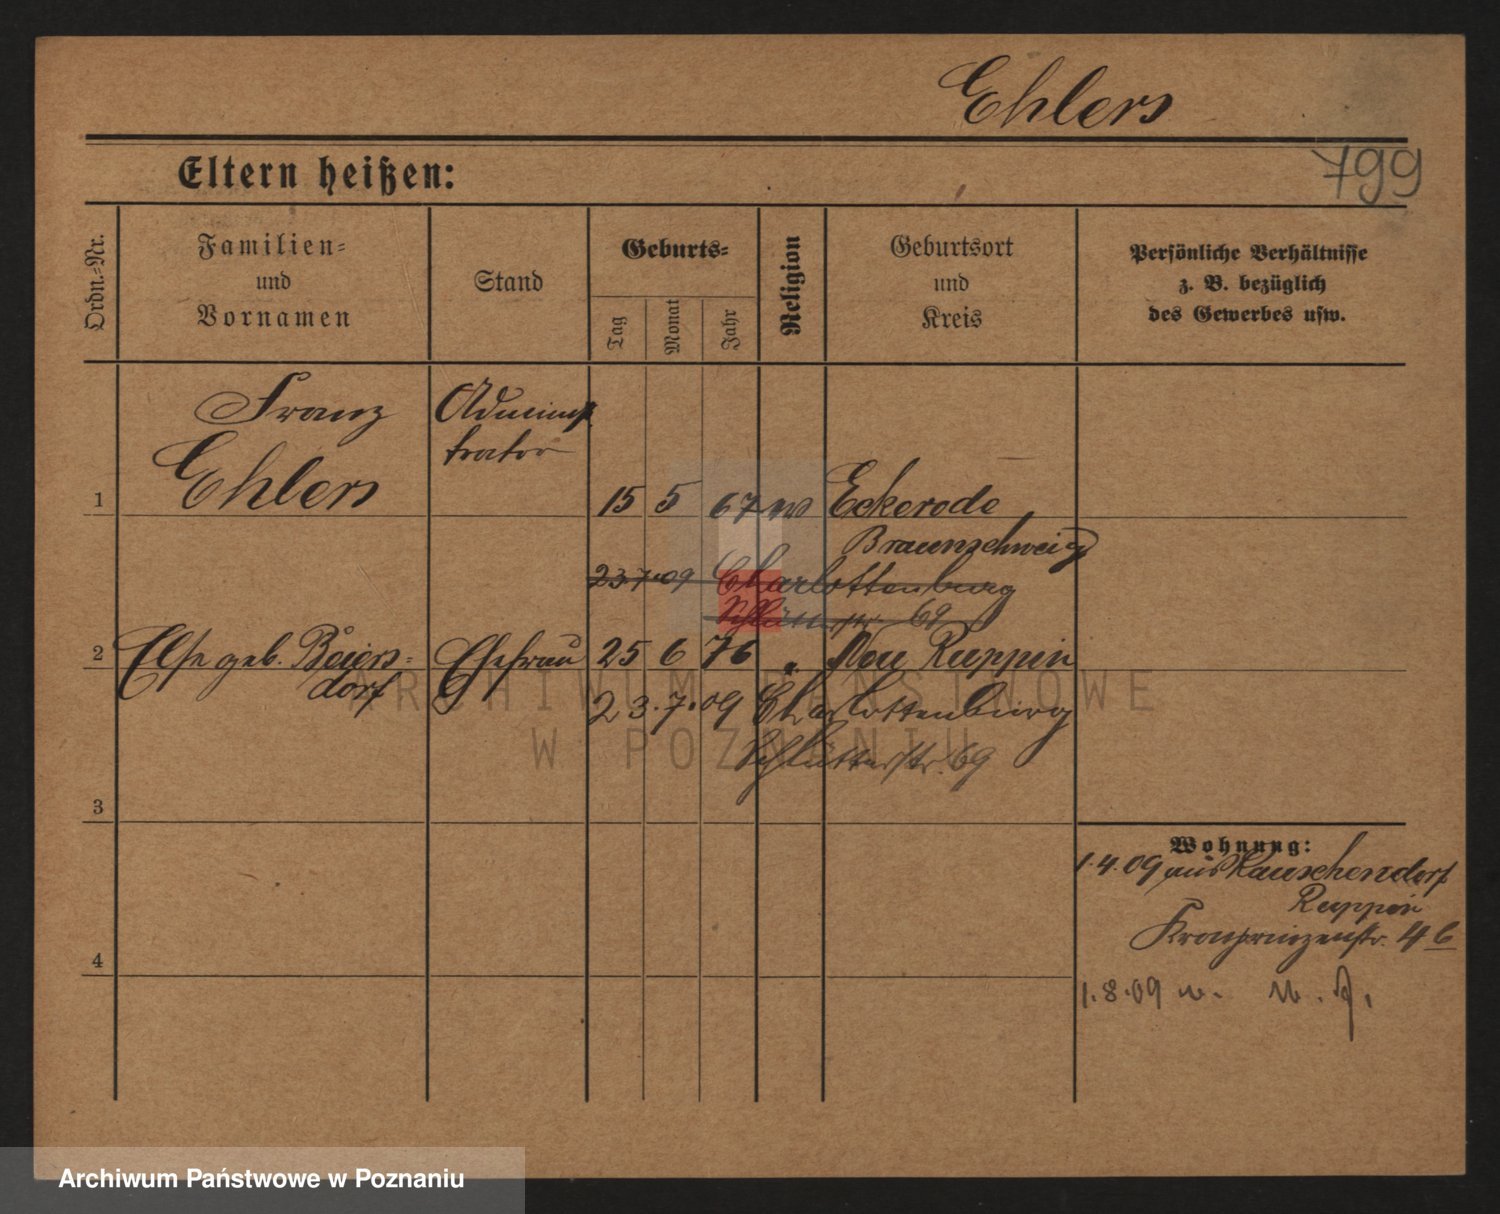 Ehlers
Eltern heißen:
799
Ordn.-Nr.
Familien-
und
Vornamen
Stand
Geburts-
Tag
Monat
Jahr
Religion
Geburtsort
und
Kreis
Persönliche Verhältnisse
z. B. bezüglich
des Gewerbes usw.
Franz Adminis
Ehlers trator
1 15 5 67 Eckerode
Braunschweig
23.7.09 Charlottenburg
Schlüterstr. 69
2 Else geb. Beiers- Ehefrau 25 6 76 " Neu Ruppin
dorf
23.7.09 Charlottenburg
Schlüterstr. 69
3
Wohnung:
1.4.09 aus Rauschendorf
Ruppin
Kronprinzenstr. 46
4
1.8.09
ARCHIWUM PAŃSTWOWE
W POZNANIU
Archiwum Państwowe w Poznaniu